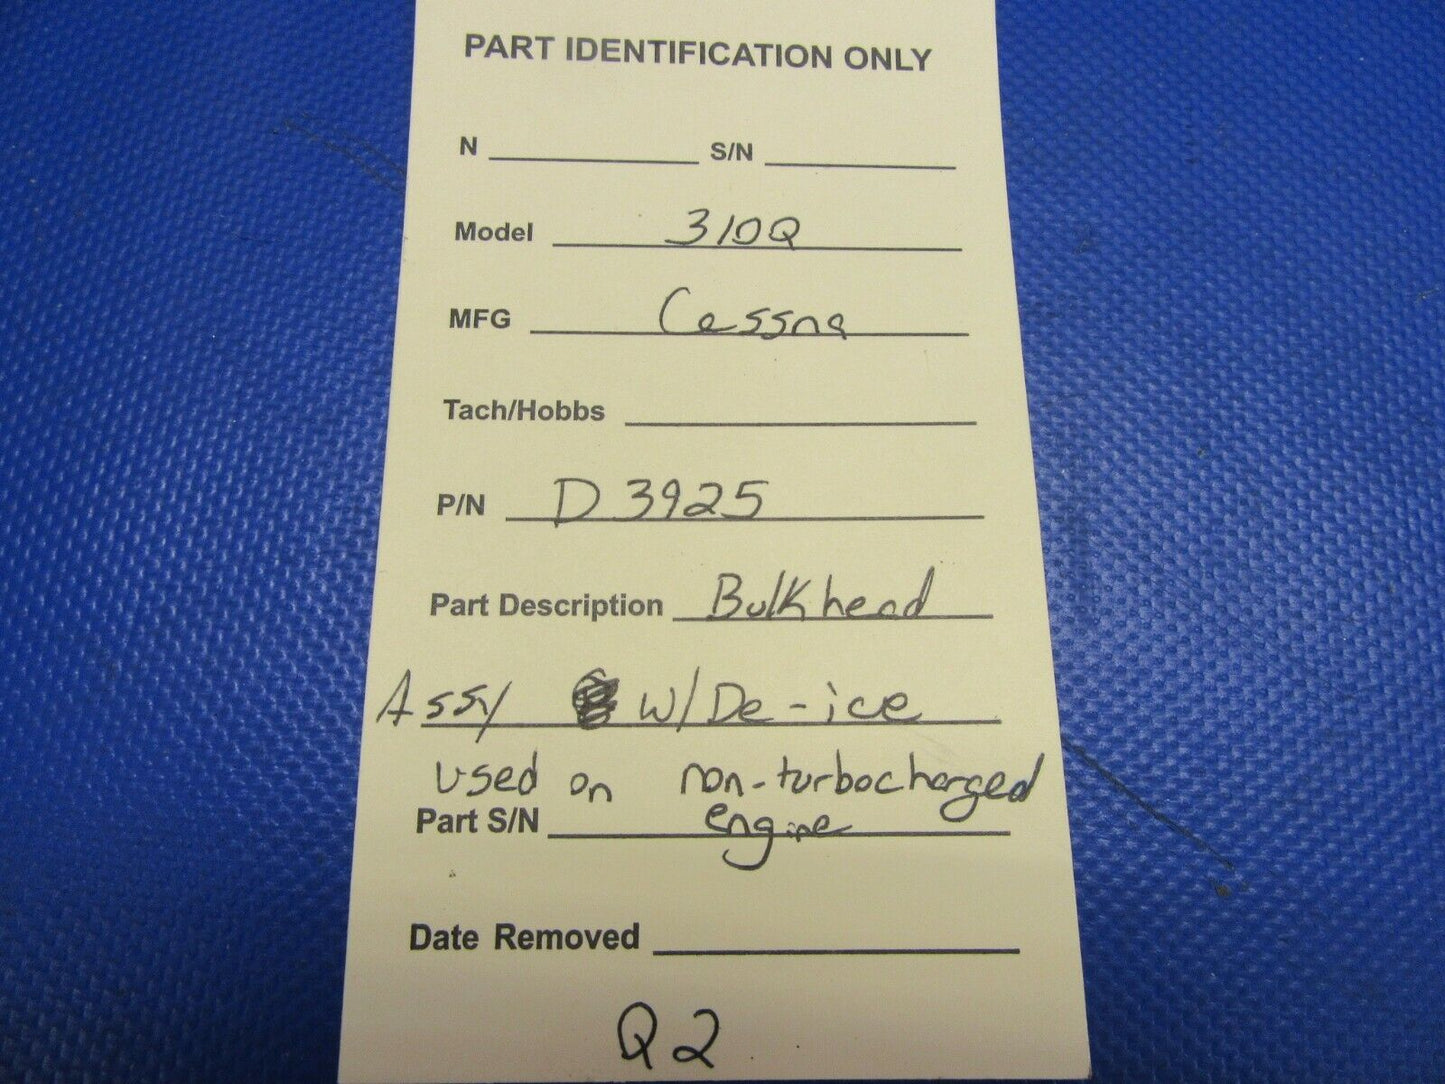 PART IDENTIFICATION ONLY
N S/N
Model 310Q
MFG Cessna
Tach/Hobbs
P/N D3925
Part Description Bulkhead
Assy w/De-ice
used on non-turbocharged
Part S/N engine
Date Removed
Q2